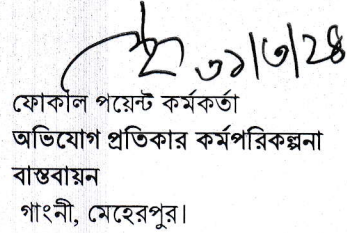 ৩১/৩/২৪
ফোকাল পয়েন্ট কর্মকর্তা
অভিযোগ প্রতিকার কর্মপরিকল্পনা
বাস্তবায়ন
গাংনী, মেহেরপুর।